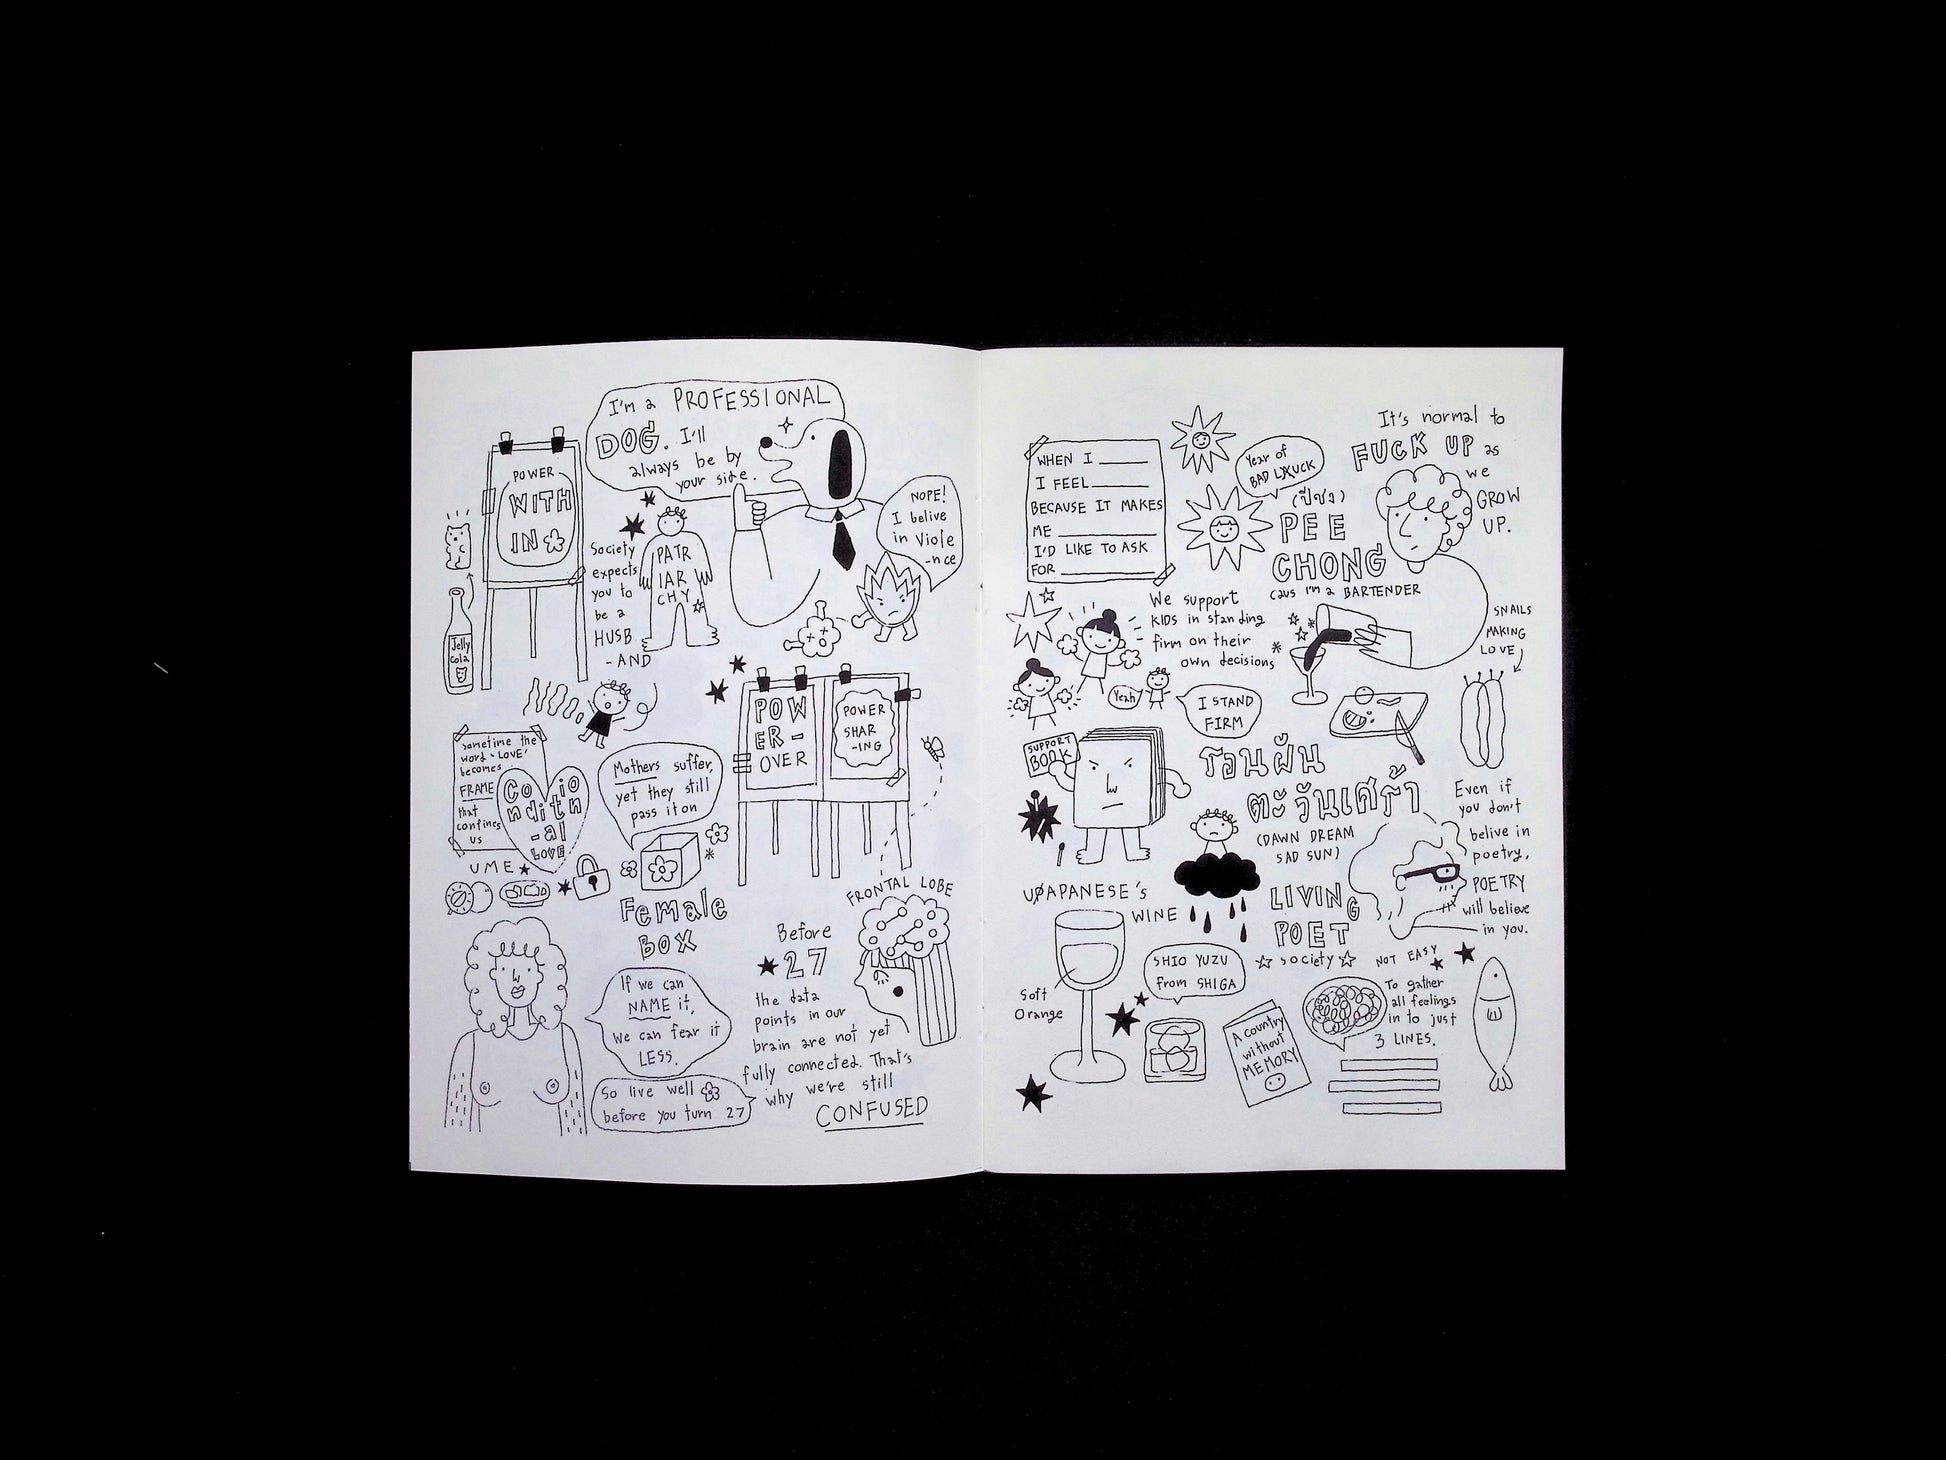 I'm a PROFESSIONAL
DOG. I'll
always be by
your side.
POWER
WITH
IN
NOPE!
I belive
in Viole
-nce
Society
expects
you to
be a
HUSB
-AND
PATR
IAR
CHY
Jelly
cola
Sometime the
word 'LOVE'
becomes
FRAME
that
confines
us
Co io
nditn
-al
LOVE
Mothers suffer,
yet they still
pass it on
POW
ER-
OVER
POWER
SHAR
-ING
UME
Female
BOX
FRONTAL LOBE
If we can
NAME it,
we can fear it
LESS.
So live well
before you turn 27
Before
27
the data
points in our
brain are not yet
fully connected. That's
why we're still
CONFUSED
WHEN I ____
I FEEL ____
BECAUSE IT MAKES
ME ____
I'D LIKE TO ASK
FOR ____
Year of
BAD LUCK
(ปีชง)
PEE
CHONG
caus I'm a BARTENDER
It's normal to
FUCK UP as
we
GROW
UP.
We support
KIDS in standing
firm on their
own decisions
Yeah
I STAND
FIRM
SNAILS
MAKING
LOVE
SUPPORT
BOOK
รอนฝัน
ตะวันเศร้า
(DAWN DREAM
SAD SUN)
LIVING
POET
society
Even if
you don't
belive in
poetry,
POETRY
will believe
in you.
JAPANESE's
WINE
Soft
Orange
SHIO YUZU
from SHIGA
A country
without
MEMORY
NOT EASY
To gather
all feelings
in to just
3 LINES.